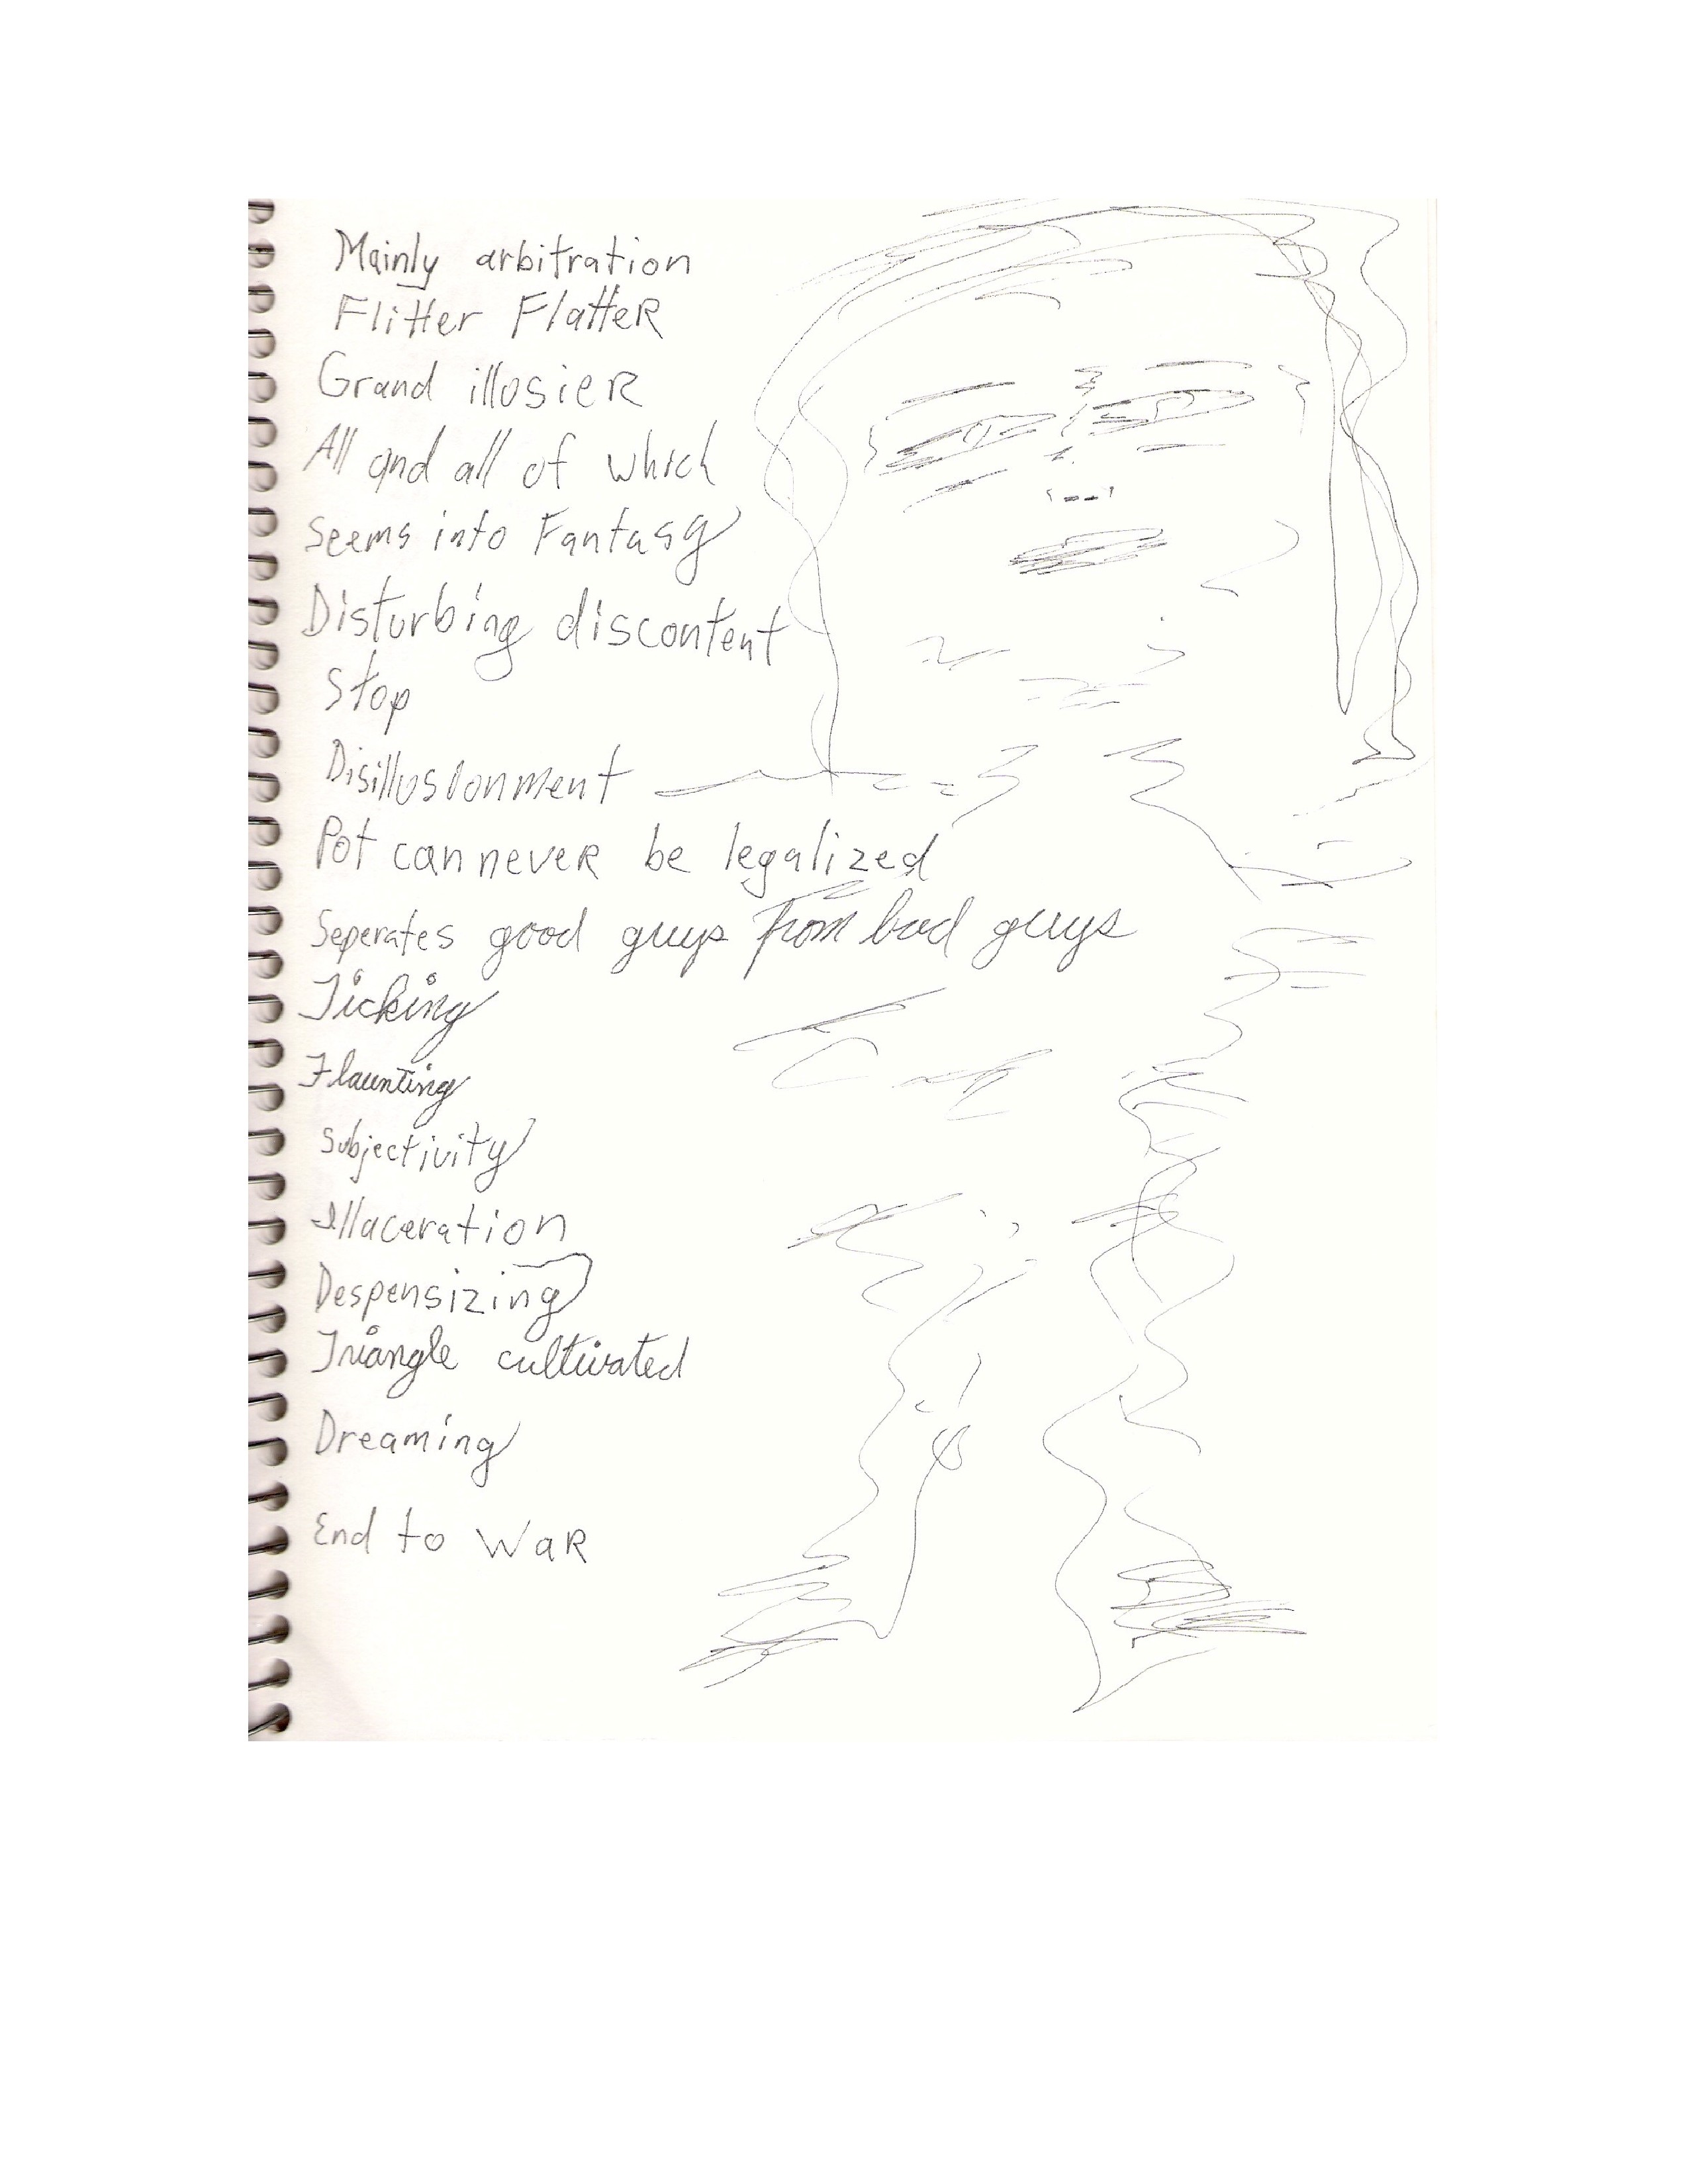 Mainly arbitration
Flitter FlatteR
Grand illosieR
All and all of which
Seems into Fantasy
Disturbing discontent
Stop
Disillusionment
Pot can neveR be legalized
Seperates good guys from bad guys
Ticking
Flaunting
Subjectivity
Illaceration
Despensizing
Triangle cultivated
Dreaming
End to WaR